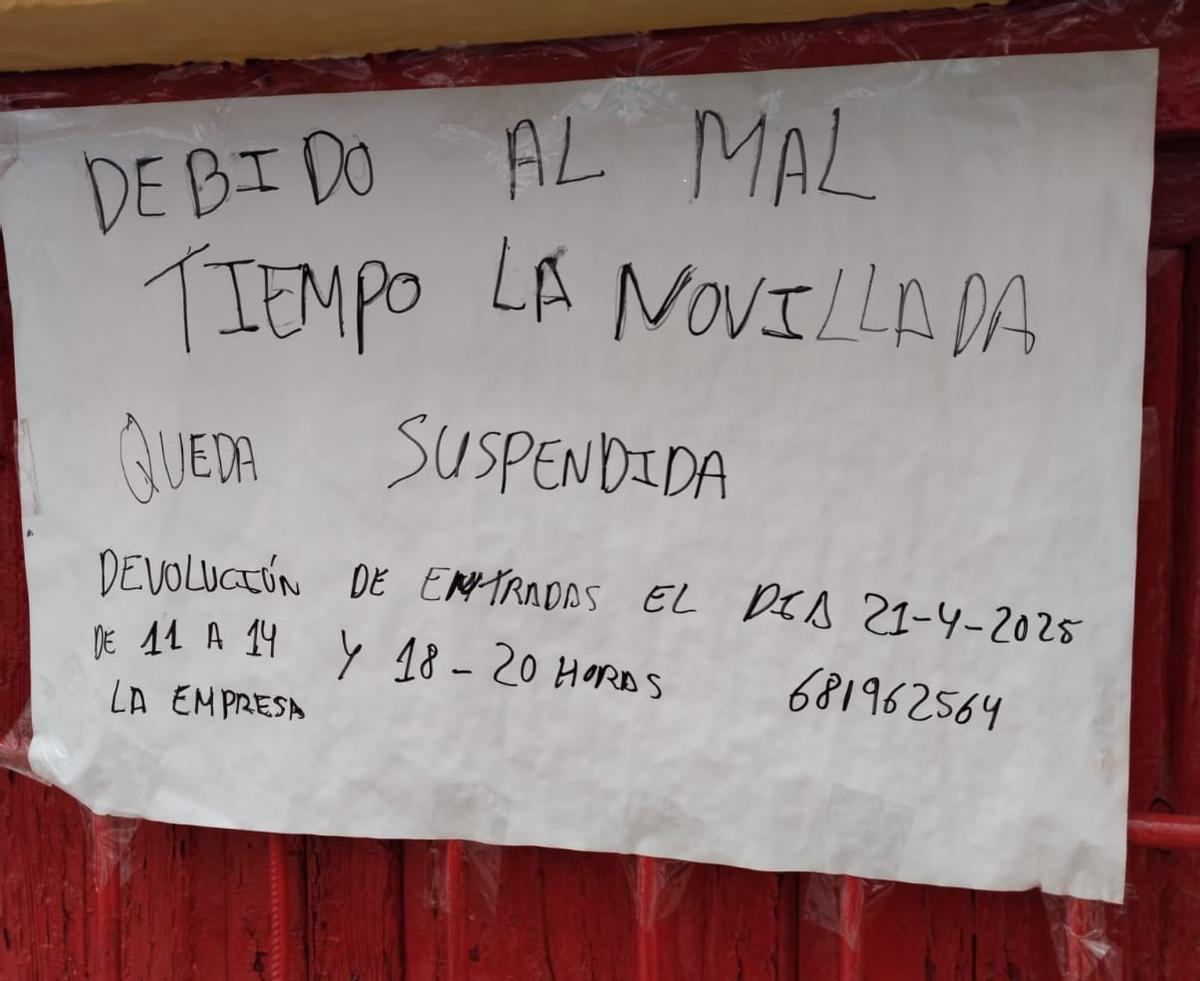 DEBIDO AL MAL
TIEMPO LA NOVILLADA
QUEDA SUSPENDIDA
DEVOLUCIÓN DE ENTRADAS EL DIA 21-4-2025
DE 11 A 14 Y 18-20 HORAS 681962564
LA EMPRESA